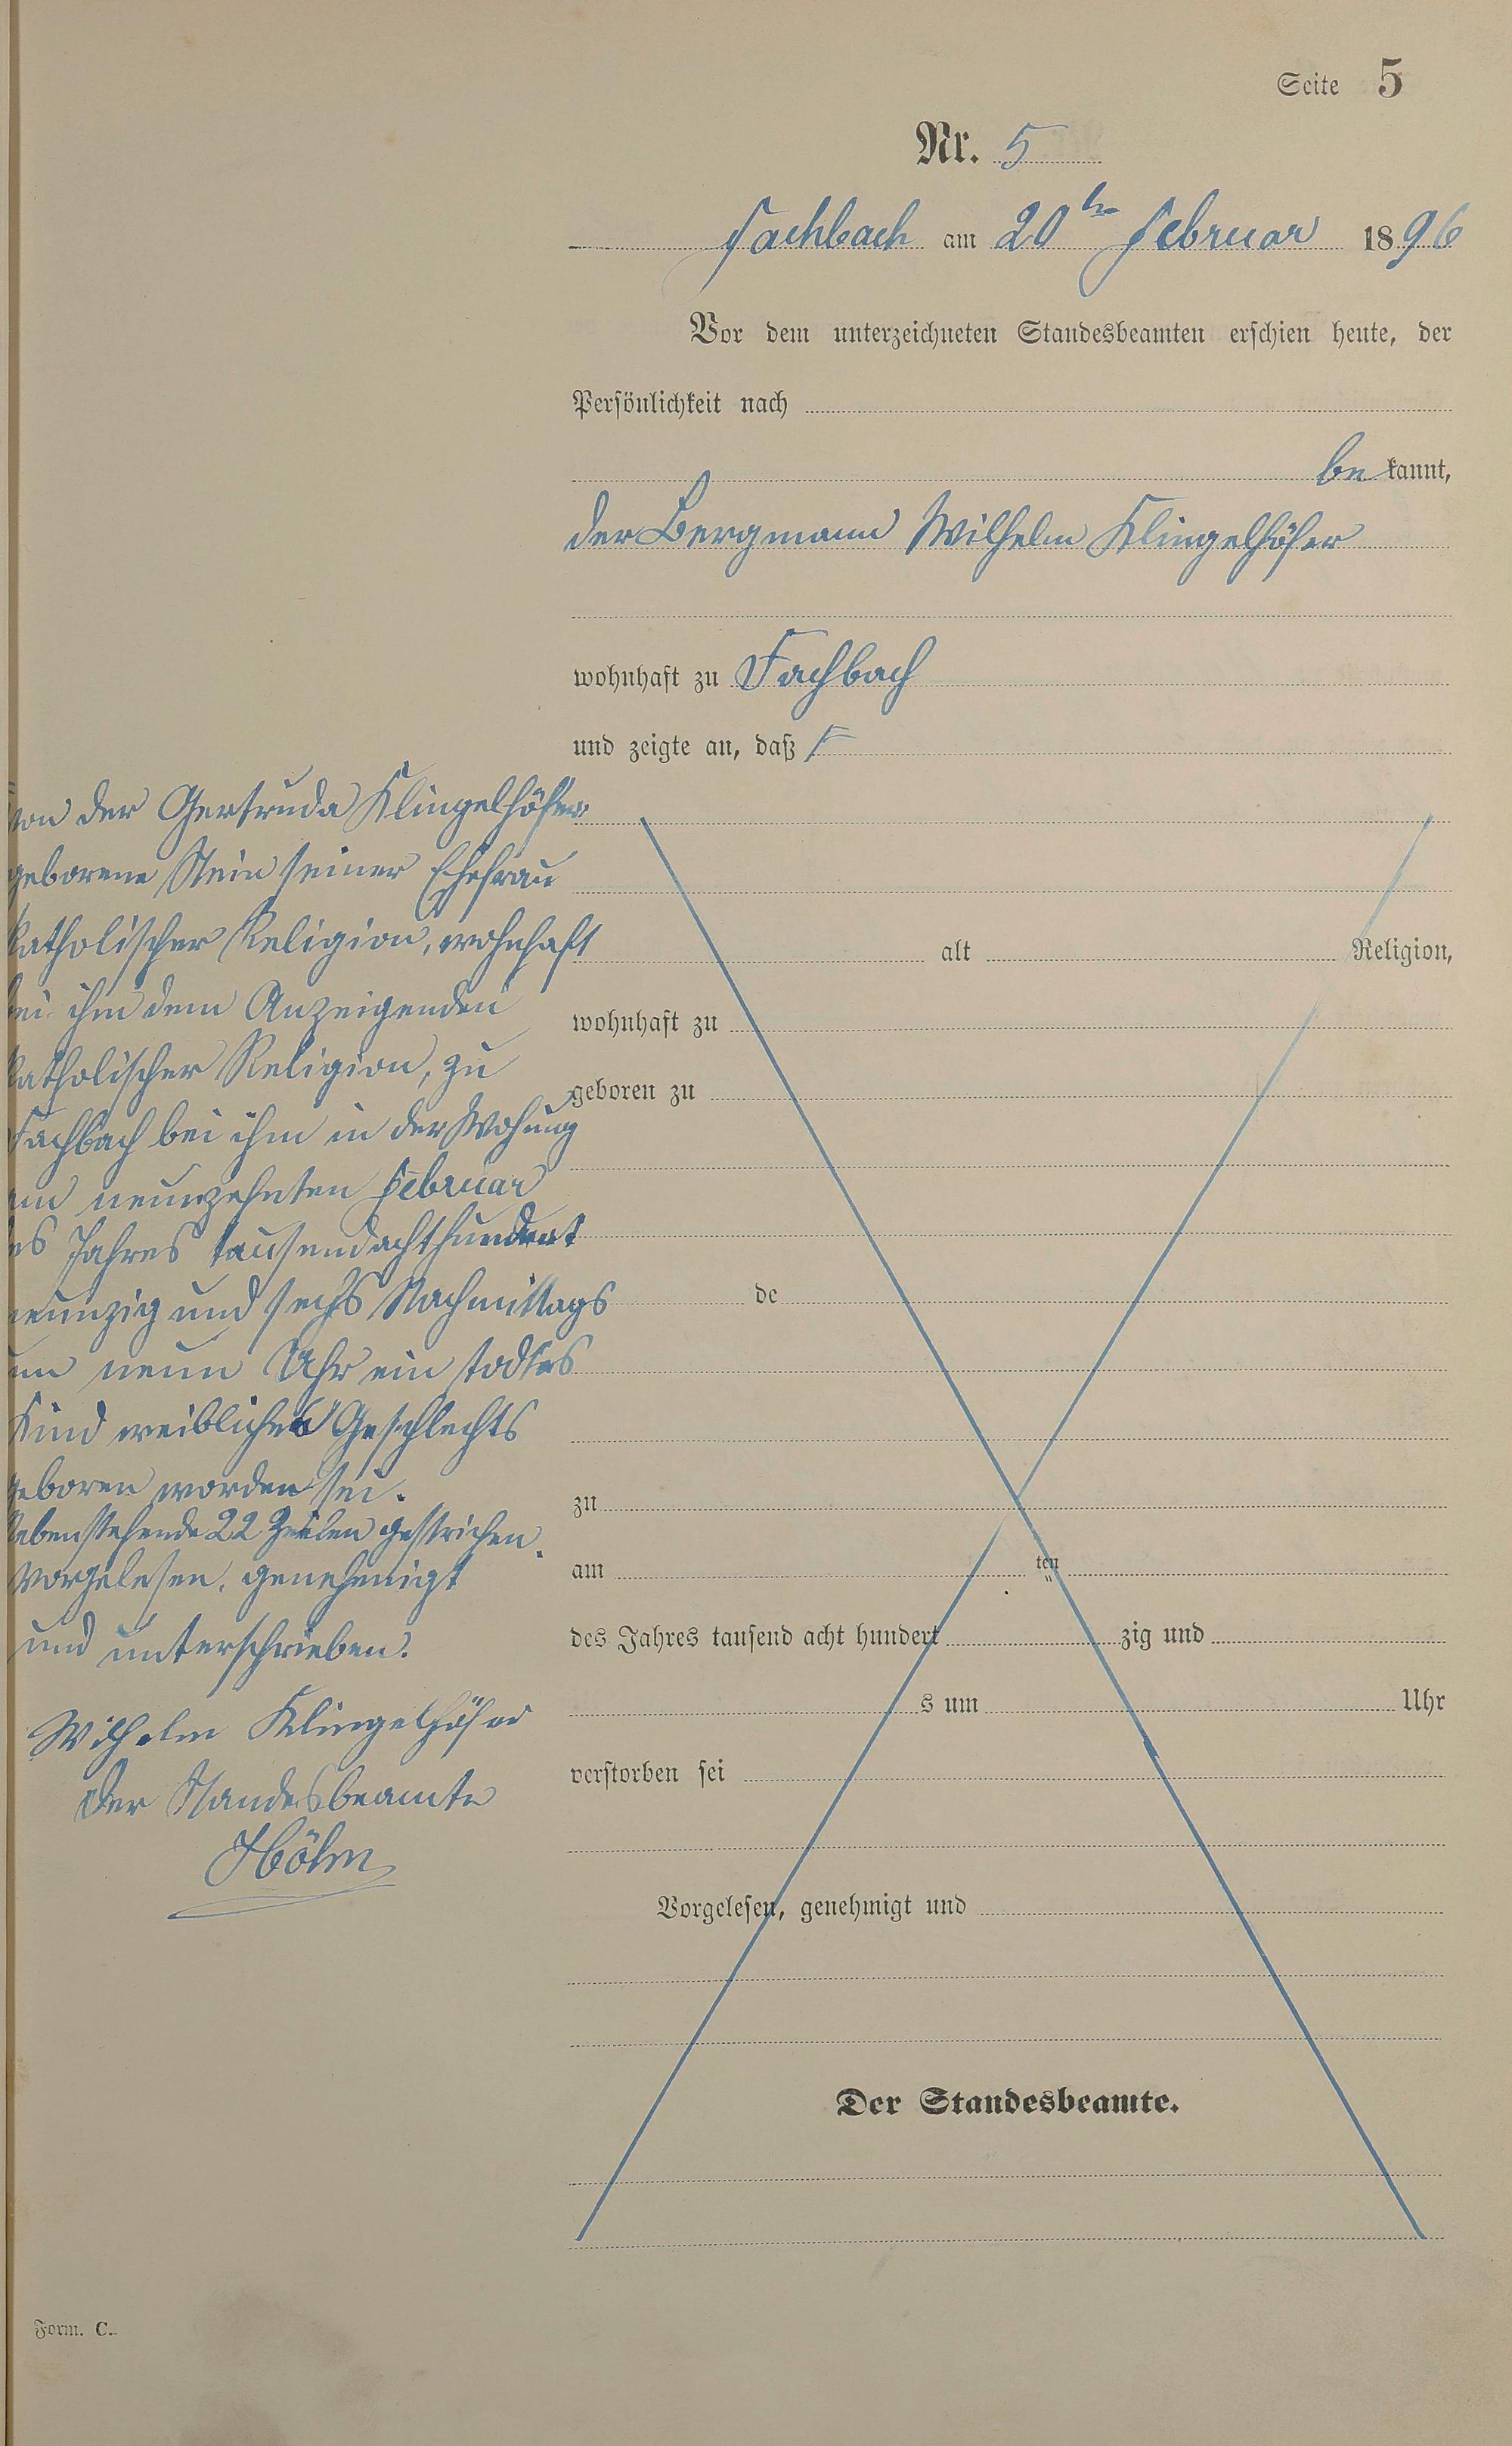 Seite 5
Nr. 5
Fachbach am 20ten Februar 1896
Vor dem unterzeichneten Standesbeamten erschien heute, der
Persönlichkeit nach
be kannt,
der Bergmann Wilhelm Klingelhöfer
wohnhaft zu Fachbach
und zeigte an, daß
von der Gertruda Klingelhöfer
geborene Stein seiner Ehefrau
katholischer Religion, wohnhaft
bei ihm dem Anzeigenden
katholischer Religion, zu
Fachbach bei ihm in der Wohung
am neunzehnten Februar
des Jahres tausendachthundert
neunzig und sechs Nachmittags
um neun Uhr ein todtes
Kind weiblichen Geschlechts
geboren worden sei.
Nebenstehende 22 Zeilen gestrichen.
Vorgelesen, genehmigt
und unterschrieben.
Wilhelm Klingelhöfer
Der Standesbeamte
Höhn
alt Religion,
wohnhaft zu
geboren zu
de
zu
am ten
des Jahres tausend acht hundert zig und
s um Uhr
verstorben sei
Vorgelesen, genehmigt und
Der Standesbeamte.
Form. C.